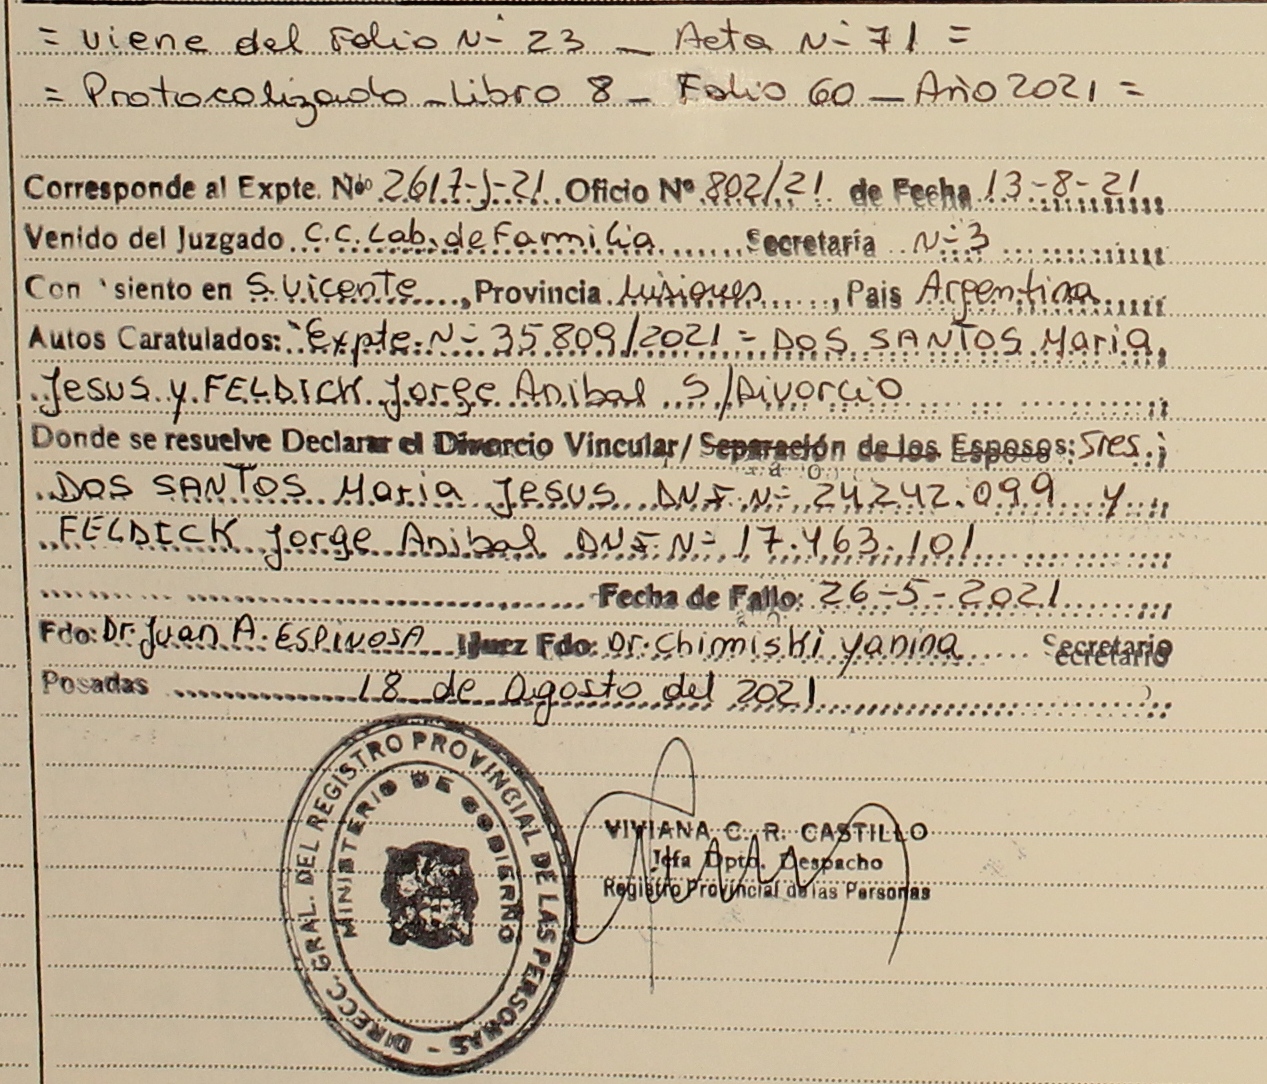 = viene del Folio N- 23 _ Acta N- 71 =
= Protocolizado - Libro 8 - Folio 60 - Año 2021 =
Corresponde al Expte. Nº 2617-J-21 Oficio Nº 802/21 de Fecha 13-8-21
Venido del Juzgado C.C. Lab. de Familia Secretaría N-3
Con siento en S. Vicente, Provincia Misiones, Pais Argentina
Autos Caratulados: "Expte. N- 35809/2021 = DOS SANTOS Maria
Jesus y FELDICK Jorge Anibal S/Divorcio
Donde se resuelve Declarar el Divorcio Vincular/ Separación de los Esposos: Sres.
DOS SANTOS Maria Jesus DNI N- 24.242.099 y
FELDICK Jorge Anibal DNI N- 17.463.101
Fecha de Fallo: 26-5-2021
Fdo: Dr. Juan A. ESPINOSA Juez Fdo: Dr. Chimiski Yanina Secretario
Posadas 18 de Agosto del 2021
DIRECC. GRAL. DEL REGISTRO PROVINCIAL DE LAS PERSONAS -
MINISTERIO DE GOBIERNO
VIVIANA C. R. CASTILLO
Jefa Dpto. Despacho
Registro Provincial de las Personas